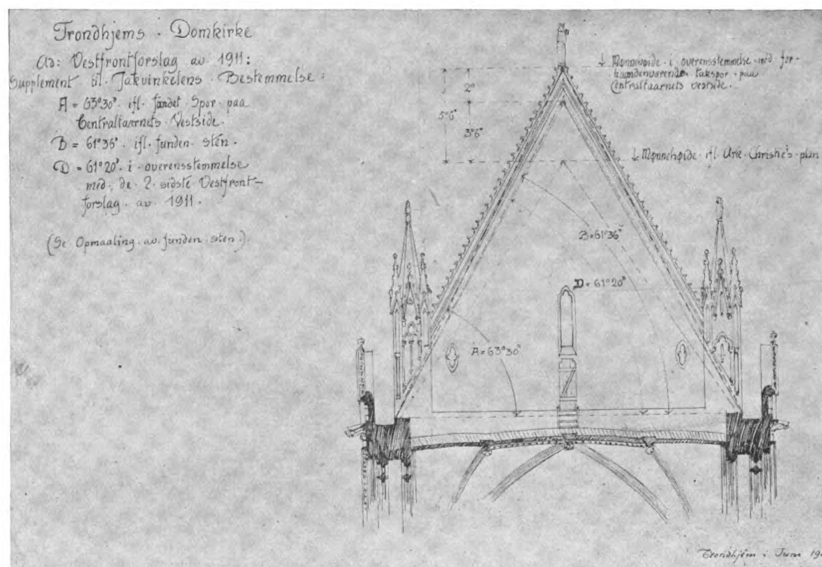 Trondhjems · Domkirke
Ad: Vestfrontforslag av 1911:
Supplement til Takvinkelens · Bestemmelse:
A = 63°30' ifl. fundet Spor paa
Centraltaarnets Vestside.
B = 61°36' ifl. funden sten.
D = 61°20' i overensstemmelse
med de 2 sidste Vestfront-
forslag av 1911.
(Se Opmaaling av funden sten.)
↓ Mønnehøide i overensstemmelse med for-
haandenværende takspor paa
Centraltaarnets vestside.
2°
5°6"
3°6"
↓ Mønnehøide ifl. Christie's plan
B=61°36'
D=61°20'
A=63°30'
Trondhjem i Juni